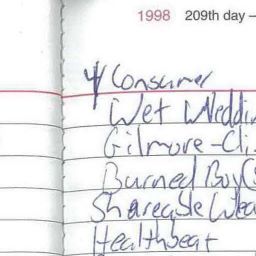 1998 209th day –
Consumer
Wet Weddin
Gilmore-Cli
Burned Boy
Shareable Wea
Healthbeat